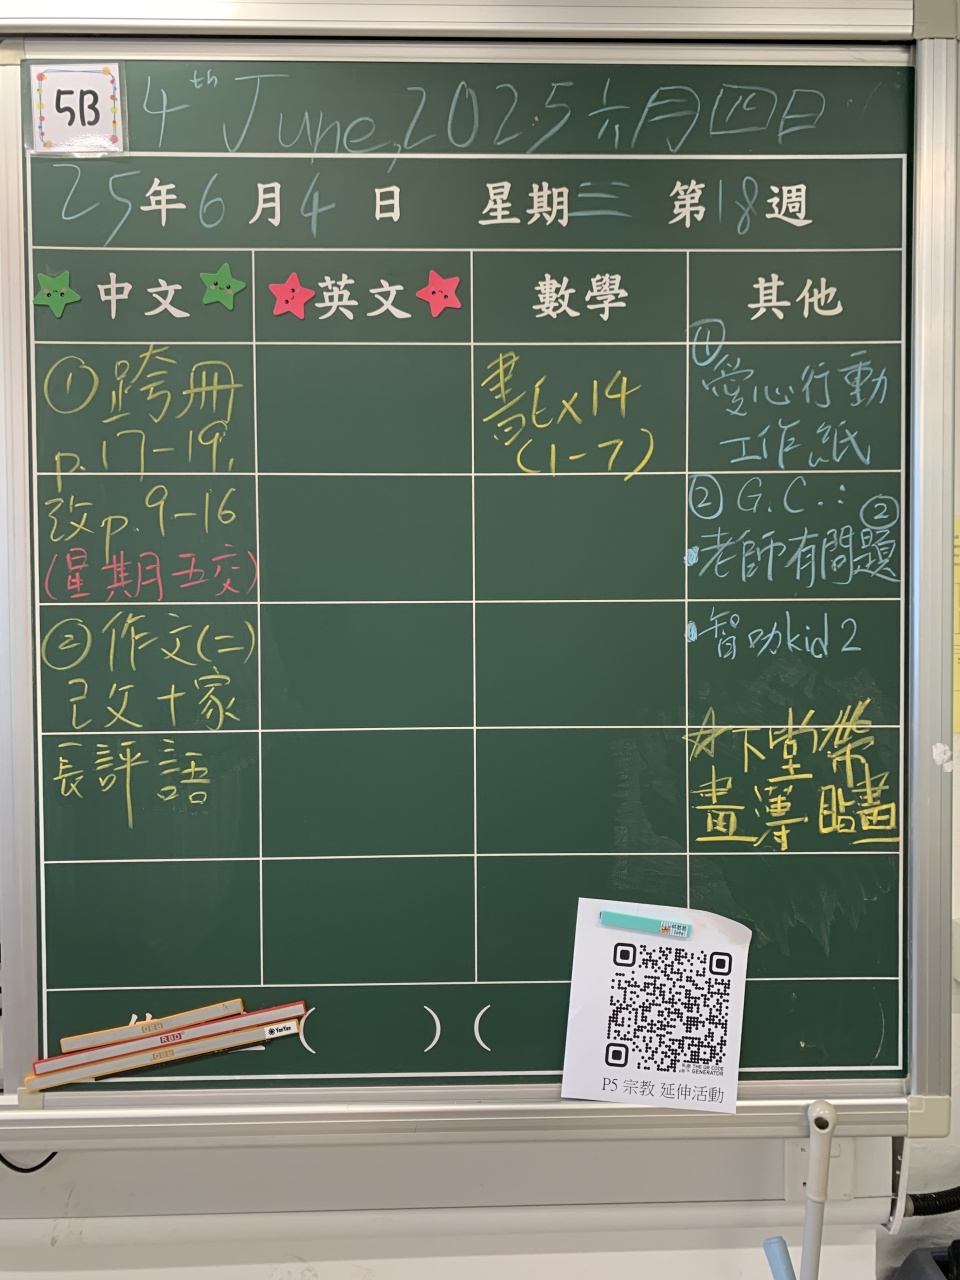 5B
4th June, 2025 六月四日
25年6月4日 星期三 第18週
中文 英文 數學 其他
①跨冊
p.17-19,
改p.9-16
(星期五交)
②作文(二)
已改十家
長評語
書Ex14
(1-7)
①
愛心行動
工作紙
② G.C.:
老師有問題②
智叻kid 2
☆下堂帶
畫簿 貼畫
( ) (
RBD
YanYan
THE QR CODE
GENERATOR
P5 宗教 延伸活動